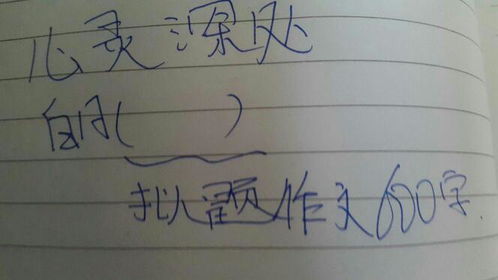 心灵深处
的(        )
拟题作文600字